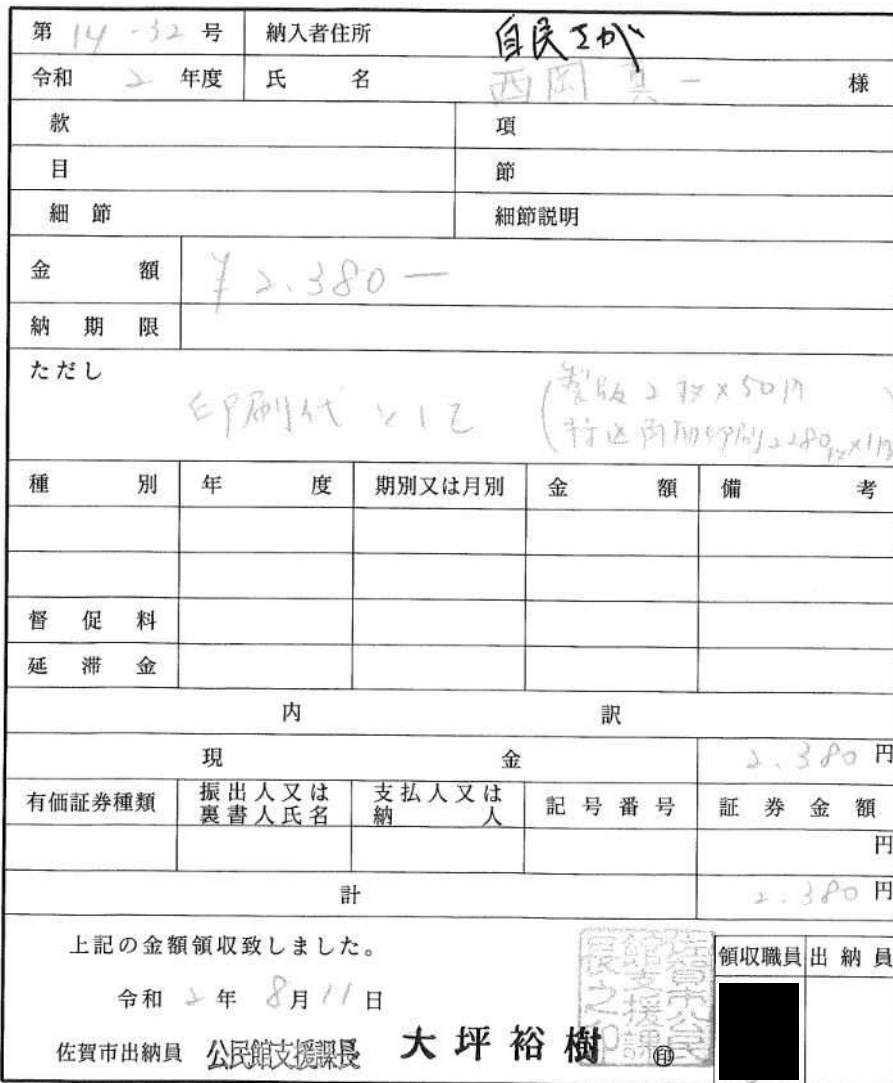 第 14-32 号 納入者住所 自民さが
令和 2 年度 氏 名 西岡 真一 様
款 項
目 節
細 節 細節説明
金 額 ¥2.380-
納 期 限
ただし
印刷代として
(製版2枚×50円
両面印刷2280枚×1円)
種 別 年 度 期別又は月別 金 額 備 考
督 促 料
延 滞 金
内 訳
現 金 2.380 円
有価証券種類 振出人又は裏書人氏名 支払人又は納人 記号番号 証券金額
円
計 2.380 円
上記の金額領収致しました。
領収職員 出納員
令和 2 年 8月 11 日
佐賀市出納員 公民館支援課長 大坪裕樹 ㊞
佐賀市公民館支援課長之印